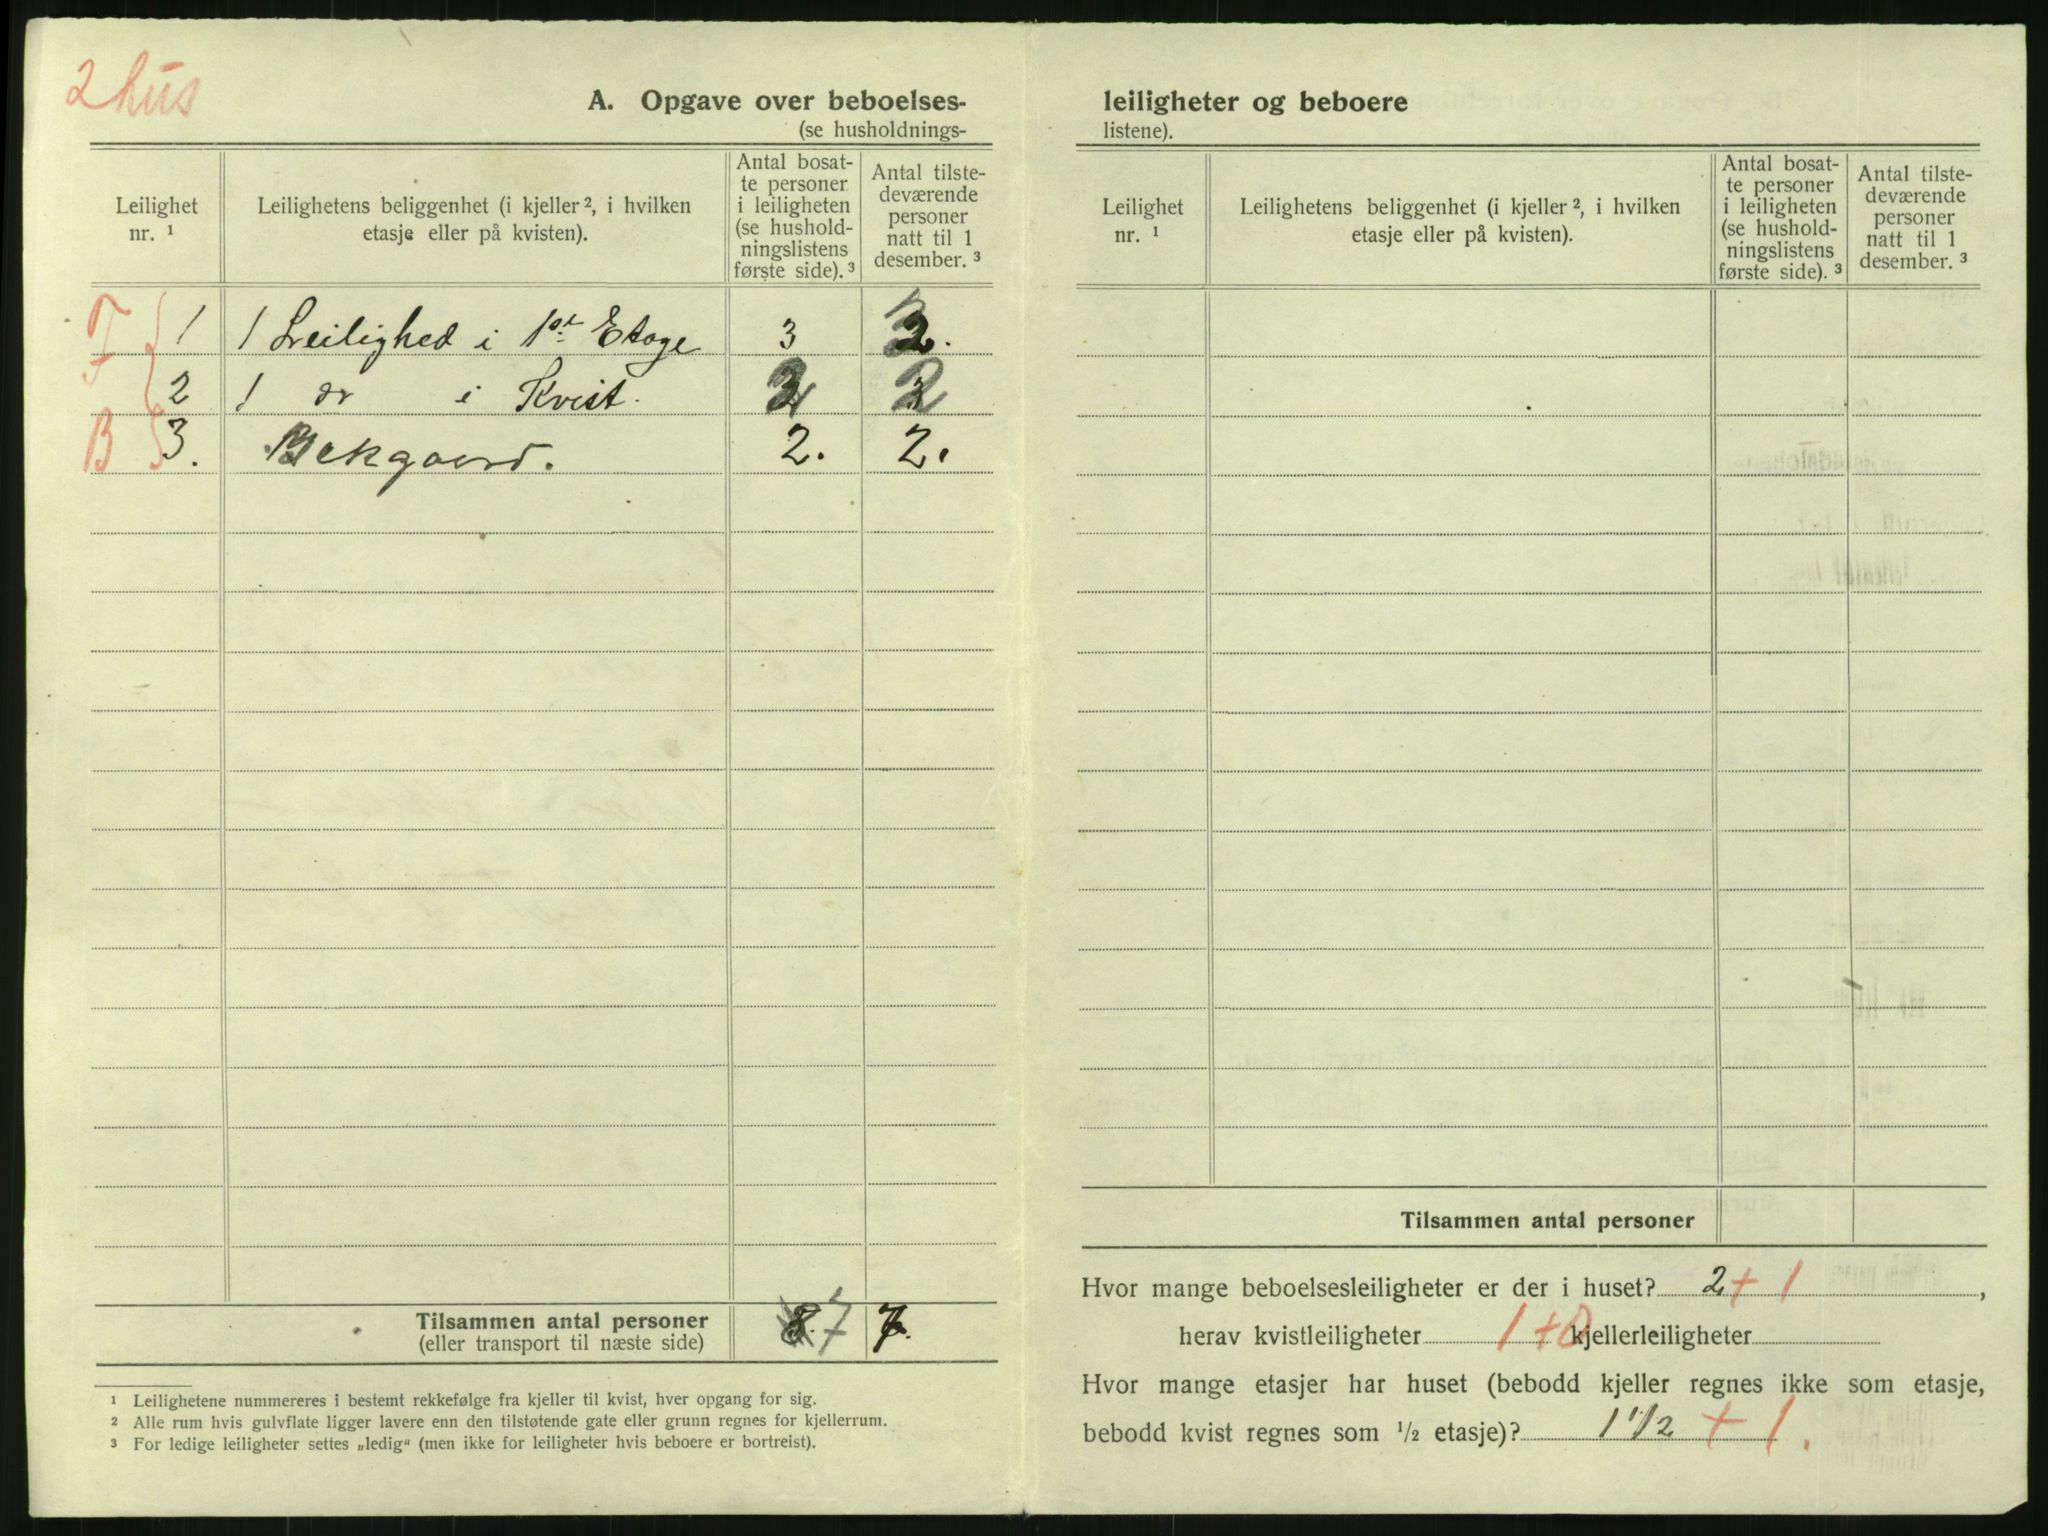 2 hus
A. Opgave over beboelses-
(se husholdnings-
Leilighet nr. ¹
Leilighetens beliggenhet (i kjeller ², i hvilken etasje eller på kvisten).
Antal bosatte personer i leiligheten (se husholdningslistens første side). ³
Antal tilstedeværende personer natt til 1 desember. ³
F 1 1 Leilighed i 1ste Etage 3
2 1 do i Kvist. 2 2
B 3. Bakgaard. 2. 2.
Tilsammen antal personer 7 7.
(eller transport til næste side)
¹ Leilighetene nummereres i bestemt rekkefølge fra kjeller til kvist, hver opgang for sig.
² Alle rum hvis gulvflate ligger lavere enn den tilstøtende gate eller grunn regnes for kjellerrum.
³ For ledige leiligheter settes „ledig" (men ikke for leiligheter hvis beboere er bortreist).
leiligheter og beboere
listene).
Leilighet nr. ¹
Leilighetens beliggenhet (i kjeller ², i hvilken etasje eller på kvisten).
Antal bosatte personer i leiligheten (se husholdningslistens første side). ³
Antal tilstedeværende personer natt til 1 desember. ³
Tilsammen antal personer
Hvor mange beboelsesleiligheter er der i huset? 2 + 1,
herav kvistleiligheter 1 + 0 kjellerleiligheter
Hvor mange etasjer har huset (bebodd kjeller regnes ikke som etasje,
bebodd kvist regnes som ½ etasje)? 1 1/2 + 1.